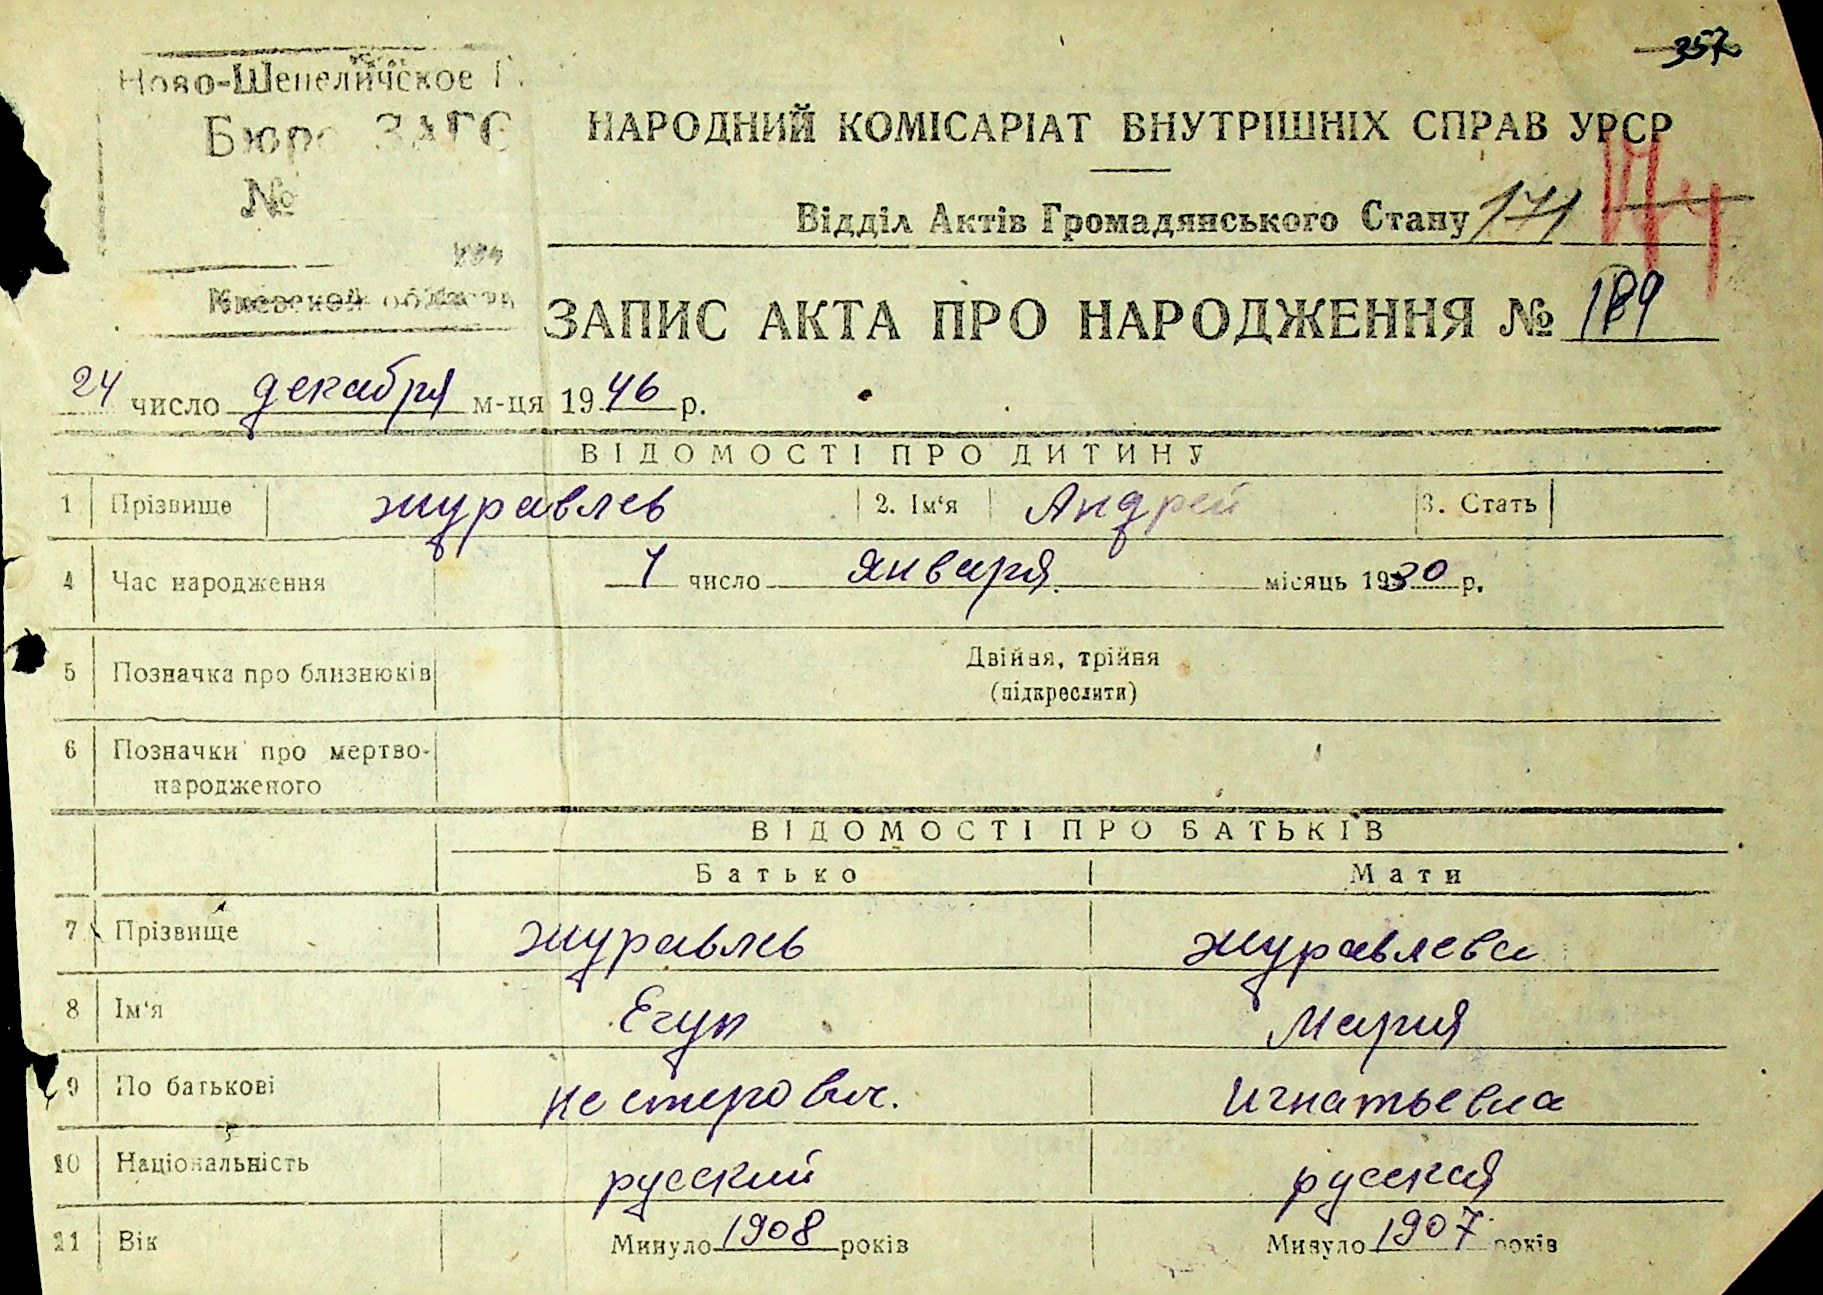 357
Ново-Шепеличское
Бюро ЗАГС
№
Киевской области
НАРОДНИЙ КОМІСАРІАТ ВНУТРІШНІХ СПРАВ УРСР
Відділ Актів Громадянського Стану 171
ЗАПИС АКТА ПРО НАРОДЖЕННЯ № 189
24 число декабря м-ця 1946 р.
ВІДОМОСТІ ПРО ДИТИНУ
1 Прізвище Журавлев 2. Ім'я Андрей 3. Стать
4 Час народження 1 число января місяць 1930 р.
5 Позначка про близнюків Двійня, трійня
(підкреслити)
6 Позначки про мертво-
народженого
ВІДОМОСТІ ПРО БАТЬКІВ
Батько Мати
7 Прізвище Журавлев Журавлева
8 Ім'я Егун Мария
9 По батькові Нестерович. Игнатьевна
10 Національність русский русская
11 Вік Минуло 1908 років Минуло 1907 років